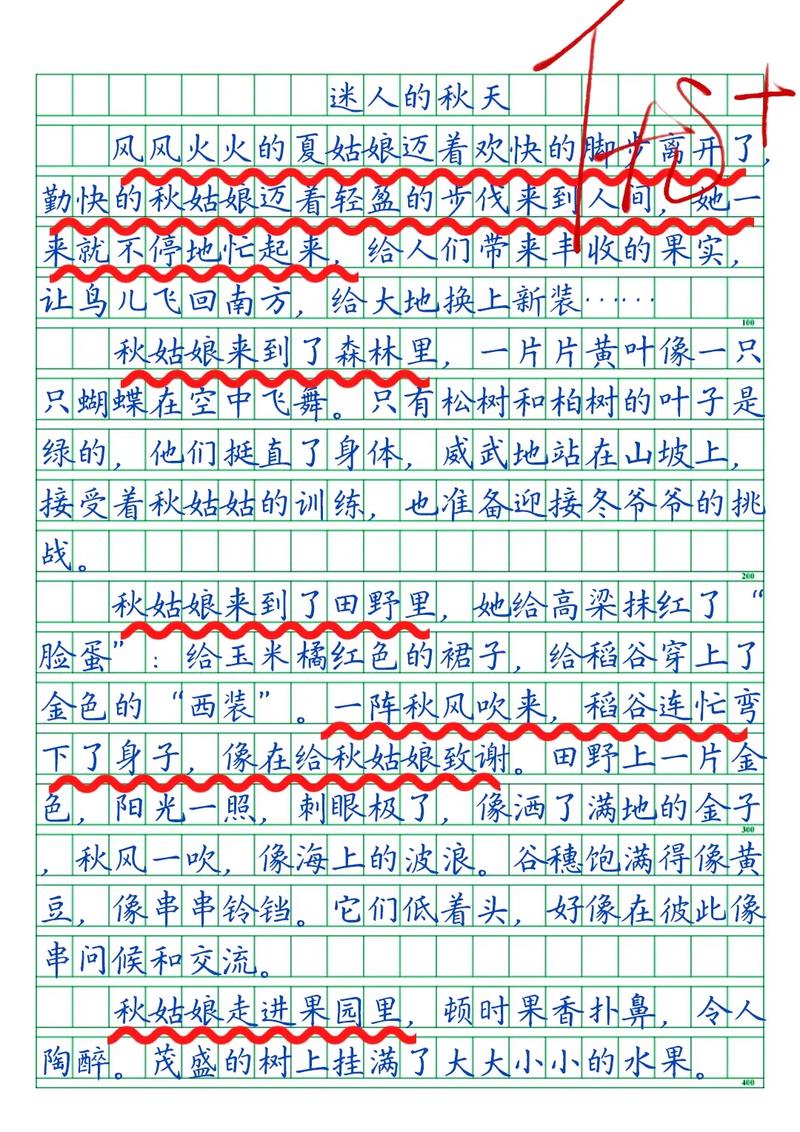 迷人的秋天
风风火火的夏姑娘迈着欢快的脚步离开了，
勤快的秋姑娘迈着轻盈的步伐来到人间，她一
来就不停地忙起来，给人们带来丰收的果实，
让鸟儿飞回南方，给大地换上新装……
100
秋姑娘来到了森林里，一片片黄叶像一只
只蝴蝶在空中飞舞。只有松树和柏树的叶子是
绿的，他们挺直了身体，威武地站在山坡上，
接受着秋姑姑的训练，也准备迎接冬爷爷的挑
战。
200
秋姑娘来到了田野里，她给高梁抹红了“
脸蛋”：给玉米橘红色的裙子，给稻谷穿上了
金色的“西装”。一阵秋风吹来，稻谷连忙弯
下了身子，像在给秋姑娘致谢。田野上一片金
色，阳光一照，刺眼极了，像洒了满地的金子
300
，秋风一吹，像海上的波浪。谷穗饱满得像黄
豆，像串串铃铛。它们低着头，好像在彼此像
串问候和交流。
秋姑娘走进果园里，顿时果香扑鼻，令人
陶醉。茂盛的树上挂满了大大小小的水果。
400